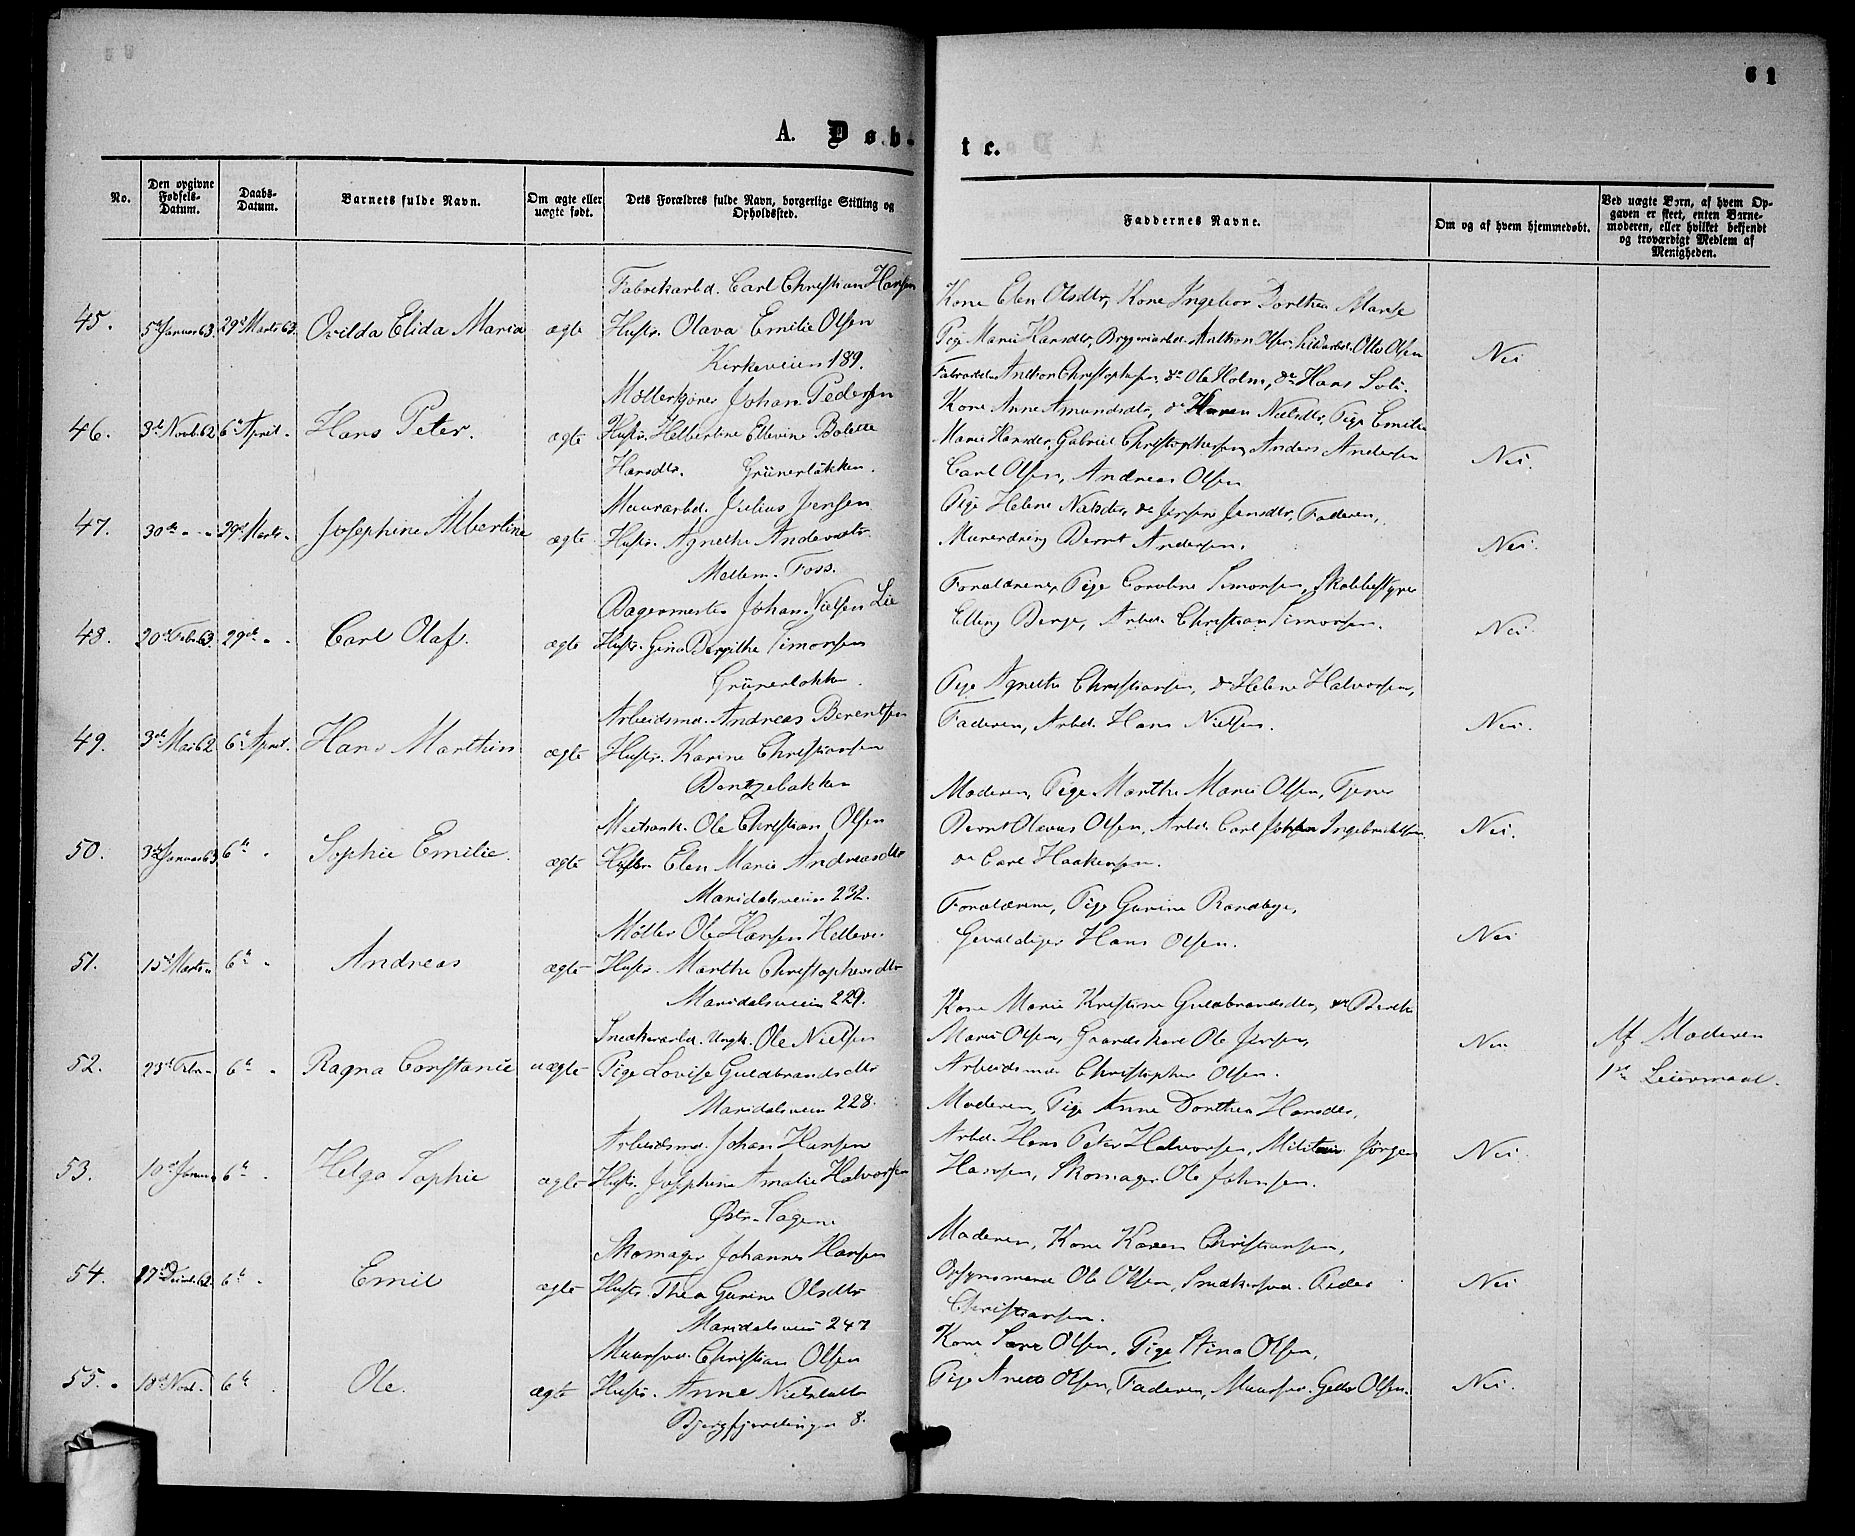 61
A. Døb-
te.
No.
Den opgivne Fødsels-Datum.
Daabs-Datum.
Barnets fulde Navn.
Om ægte eller uægte født.
Dets Forældres fulde Navn, borgerlige Stilling og Opholdssted.
Faddernes Navne.
Om og af hvem hjemmedøbt.
Ved uægte Børn, af hvem Opgaven er skeet, enten Barnemoderen, eller hvilket bekjendt og troværdigt Medlem af Menigheden.
Fabrikarbd. Carl Christian Hansen
45. 5te Januar 63. 29de Marts 63. Ovilda Elida Maria ægte Hustr. Olava Emilie Olsen
Kirkeveien 189.
Kone Elen Olsdtr, Kone Ingebor Dorthea
Pige Marie Hansdtr, Bryggeriarbd. Anthon Olsen, Otto Olsen
Anthon Christophersen, do Ole Holm, do Hans
Nei
Møllerkjører Johan Pedersen
46. 3de Novb. 62 6te April. Hans Peter. ægte Hustr. Helbertine Ellevine Bolette
Hansdtr. Grünerløkken.
Kone Anne Amundsdtr, do Karen Nielsdtr, Pige Emilie
Marie Hansdtr, Gabriel Christophersen, Anders Andersen
Carl Olsen, Andreas Olsen
Nei.
Muurarbd. Julius Jensen
47. 30te 29de Marts Josephine Albertine ægte Hustr. Agnethe Andersdtr.
Mellem. Foss.
Pige Helene Nielsdtr, do Jensdtr, Faderen,
Bernt Andersen.
Nei.
Bagermester Johan Nielsen Lie
48. 20de Febr 63. 29de Carl Olaf. ægte Hustr. Gina Bergithe Simonsen
Grünerløkke.
Forældrene, Pige Caroline Simonsen,
Elling Berge, Arbd. Christian Simonsen.
Nei.
Arbeidsmd. Andreas Berentsen
49. 3de 62. 6te April. Hans Marthin ægte Hustr. Karine Christiansen
Bentzebakken
Pige Agnethe Christiansen, do Helene Halvorsen,
Faderen, Arbd. Hans Nielsen.
Nei.
Ole Christian Olsen
50. 3de Januar 63 6te Sophie Emilie. ægte Hustr. Elen Marie Andreasdtr
Maridalsveien 232.
Moderen, Pige Marthe Marie Olsen, Tjener
Bernt Olavus Olsen, Arbd. Carl Johan Ingebrechtsen.
do Carl Haakensen.
Nei.
Møller Ole Hansen
51. 15de Marts 6te Andreas ægte Hustr. Marthe Christophersdtr
Maridalsveien 229.
Forældrene, Pige Gurine Randbye,
Gevaldiger Hans Olsen.
Nei
Snedkerarbd. Ungk. Ole Nielsen
52. 23de Febr 6te Ragna Constanie uægte Pige Lovise Guldbrandsdtr
Maridalsveien 228.
Kone Marie Kristine Guldbrandsdtr, do Berthe
Marie Olsen, Gaardskarl Ole Jensen,
Arbeidsmd. Christopher Olsen.
Nei
Af Moderen
1ste Leiermaal.
Arbeidsmd. Johan Hansen
53. 10de Januar 6te Helga Sophie ægte Hustr. Josephine Amalie Halvorsen
Østr. Sagene
Moderen, Pige Anne Dorthea Hansdtr,
Arbd. Hans Peter Halvorsen, Militair Jørgen
Hansen, Skomager Ole Johnsen.
Nei.
Skomager Johannes Hansen
54. 17de Decbr 62. 6te Emil ægte Hustr. Thea Gurine Olsdtr
Maridalsveien 247
Moderen, Kone Karen Christiansen,
Opsynsmand Ole Olsen, Snedkersvd. Peder
Christiansen.
Nei
Muursvd. Christian Olsen
55. 18de Novb. 6te Ole. ægte Hustr. Anne Nielsdatter
Bjergfjerdingen 8.
Kone Olsen, Pige Stina Olsen,
Pige Olsen, Faderen, Muursv. Olsen.
Nei.